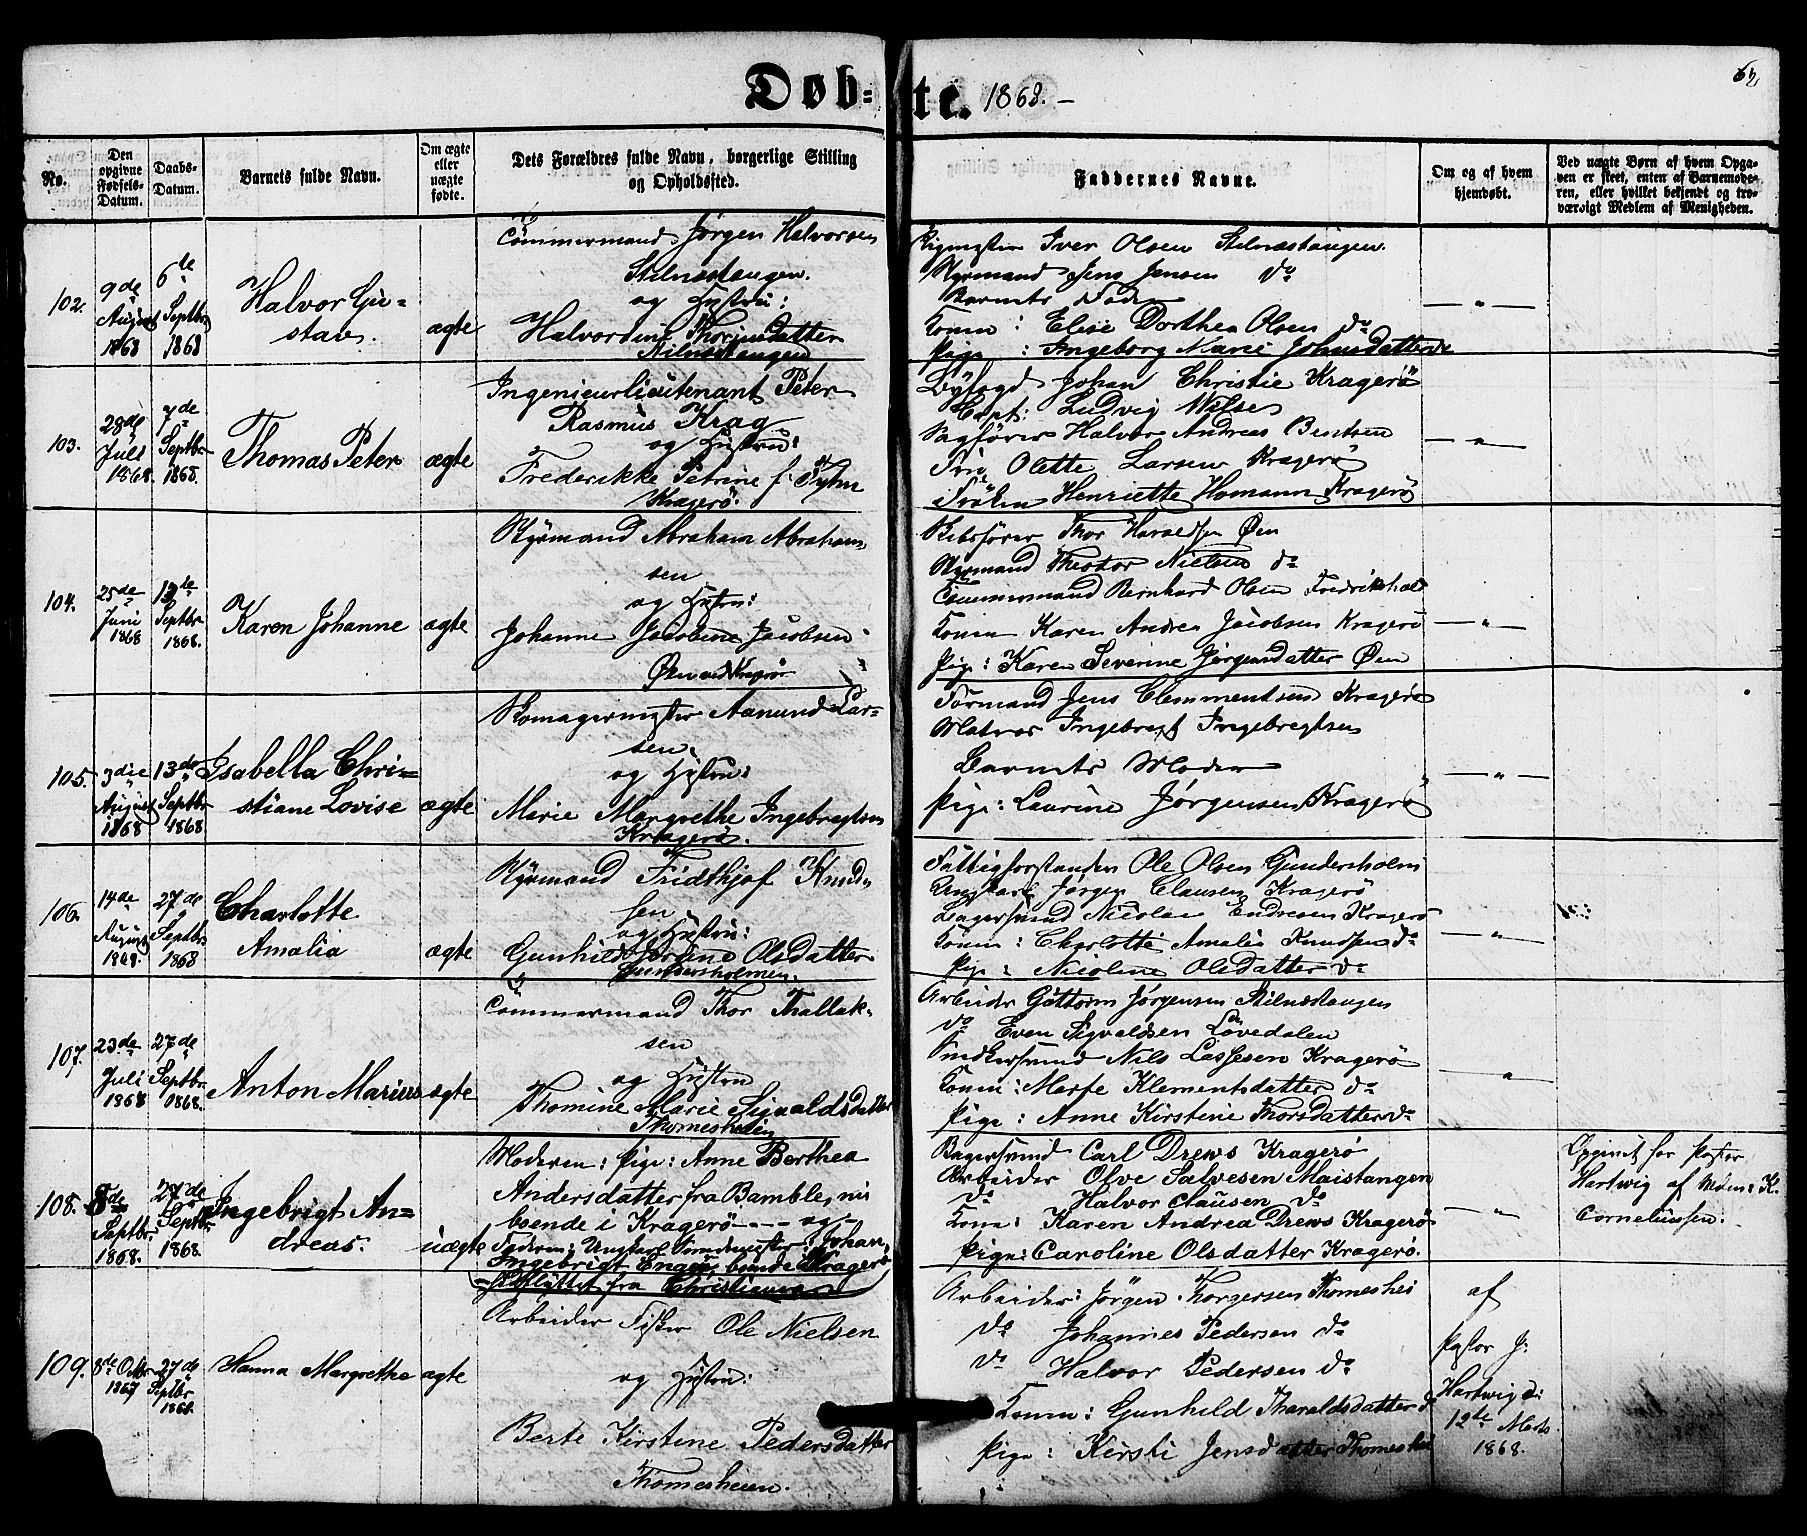 Døb=te. 1868.-
62
No.
Den opgivne Fødsels-Datum.
Daabs-Datum.
Barnets fulde Navn.
Om ægte eller uægte fødte.
Dets Forældres fulde Navn, borgerlige Stilling og Opholdssted.
Faddernes Navne.
Om og af hvem hjemdøbt.
Ved uægte Børn af hvem Opga-
ven er skeet, enten af Barnemode-
ren, eller hvilket bekjendt og tro-
værdigt Medlem af Menigheden.
102.
9de August 1868
6te Septbr 1868
Halvor Gu=
stav.
ægte
Tömmermand Jørgen Halvorsen
Stilnæstangen.
og Hustru:
Halvordine Thorjusdatter
Stilnæstangen
Iver Olsen Stilnæstangen.
Styrmand Jens Jensen do
Barnets Fader
Konen : Elise Dorthea Olsen do
Pige : Ingeborg Marie Johnsdatter do
— " —
103.
28de Juli 1868.
7de Septbr 1868.
Thomas Peter
ægte
Ingenieurlieutenant Peter
Rasmus Krag
og Hustru:
Frederikke Petrine f. Tyhn
Kragerö.
Byfogd Johan Christie Kragerö
Capt: Ludvig Wilse
Sagförer Halvor Andreas Bentsen
Olette Larsen Kragerö
Fröken Henriette Homann Kragerö
— " —
104.
25de Juni 1868
13te Septbr 1868.
Karen Johanne
ægte
Styrmand Abraham Abraham-
sen
og Hustru:
Johanne Jacobine Jacobsen
Øen ved Kragerø
Skibsförer Thor Haraldsen Øen
Styrmand Theodor Nielsen do
Tömmermand Bernhard Olsen Fredrikshald
Konen Karen Andrea Jacobsen Kragerö
Pige : Karen Severine Jørgensdatter Øen
— " —
105.
3die August 1868
13de Septbr 1868
Isabella Chri=
stiane Lovise
ægte
Skomagermester Aanund Lar=
sen
og Hustru:
Marie Margrethe Ingebregtsen
Kragerö.
Formand Jens Clemmentsen Kragerö
Matros Ingebregt Ingebregtsen
Barnets Moder
Pige : Laurine Jørgensen Kragerö
— " —
106.
14de August 1868.
27de Septbr 1868
Charlotte
Amalia
ægte
Styrmand Fridthjof Knud-
sen
og Hustru:
Gunhild Jörine Olsdatter
Gundersholmen.
Fattigforstander Ole Olsen Gundersholm
Ungkarl Jørgen Clausen Kragerö
Bagersvend Nicolai Endresen Kragerö
Konen : Charlotte Amalie Knudsen do
Pige : Nicoline Olsdatter do
— " —
107.
23de Juli 1868
27de Septbr. 1868.
Anton Marius
ægte
Tömmermand Thor Thallak-
sen
og Hustru
Thomine Marie Sigvaldsdatter
Thomesheien
Arbeider Guttorm Jørgensen Stilnæstangen
do Even Sigvaldsen Lövedalen
Snedkersvend Nils Lassesen Kragerö
Konen : Merte Klementsdatter do
Pige : Anne Kirstine Thorsdatter do
— " —
108.
8de Septbr. 1868.
27de Septbr. 1868
Ingebrigt An=
dreas.
uægte
Moderen : Pige : Anne Berthea
Andersdatter fra Bamble, nu
boende i Kragerö - - - og -
Faderen: Ungkarl Johan
Ingebrigt Engen, boende i Kragerö
indflyttet fra Christiansand
Bagersvend Carl Drews Kragerö
Arbeider Olve Salvesen Maistangen
do Halvor Clausen do
Kone : Karen Andrea Drews Kragerö
Pige : Caroline Olsdatter Kragerö.
— " —
Opgivet for Pastor
Hartwig af
Corneliussen.
109.
8de Octbr. 1867
27de Septbr 1868.
Hanna Margrethe
ægte
Arbeider Fisker Ole Nielsen
og Hustru:
Berte Kirstine Pedersdatter
Thomesheien.
Arbeider : Jörgen Thorgersen Thomeshei
do Johannes Pedersen do
do Halvor Pedersen do
Konen : Gunhild Tharaldsdatter do
Pige : Kirsti Jensdatter Thomeshei
af
Pastor J.
Hartwig d:
12te Marts
1868.